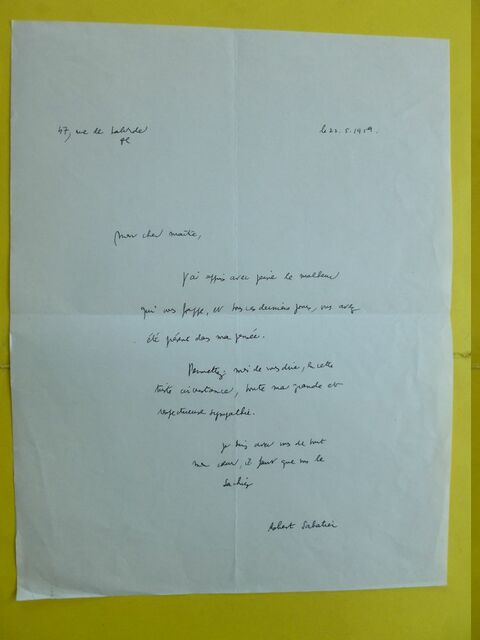 47, rue de Laborde le 22.5.1959
8e
Mon cher maître,
J'ai appris avec peine le malheur
qui vous frappe, et tous ces derniers jours, vous avez
été présent dans ma pensée.
Permettez-moi de vous dire, en cette
triste circonstance, toute ma grande et
respectueuse sympathie.
Je suis avec vous de tout
mon cœur, il faut que vous le
sachiez
Robert Sabatier